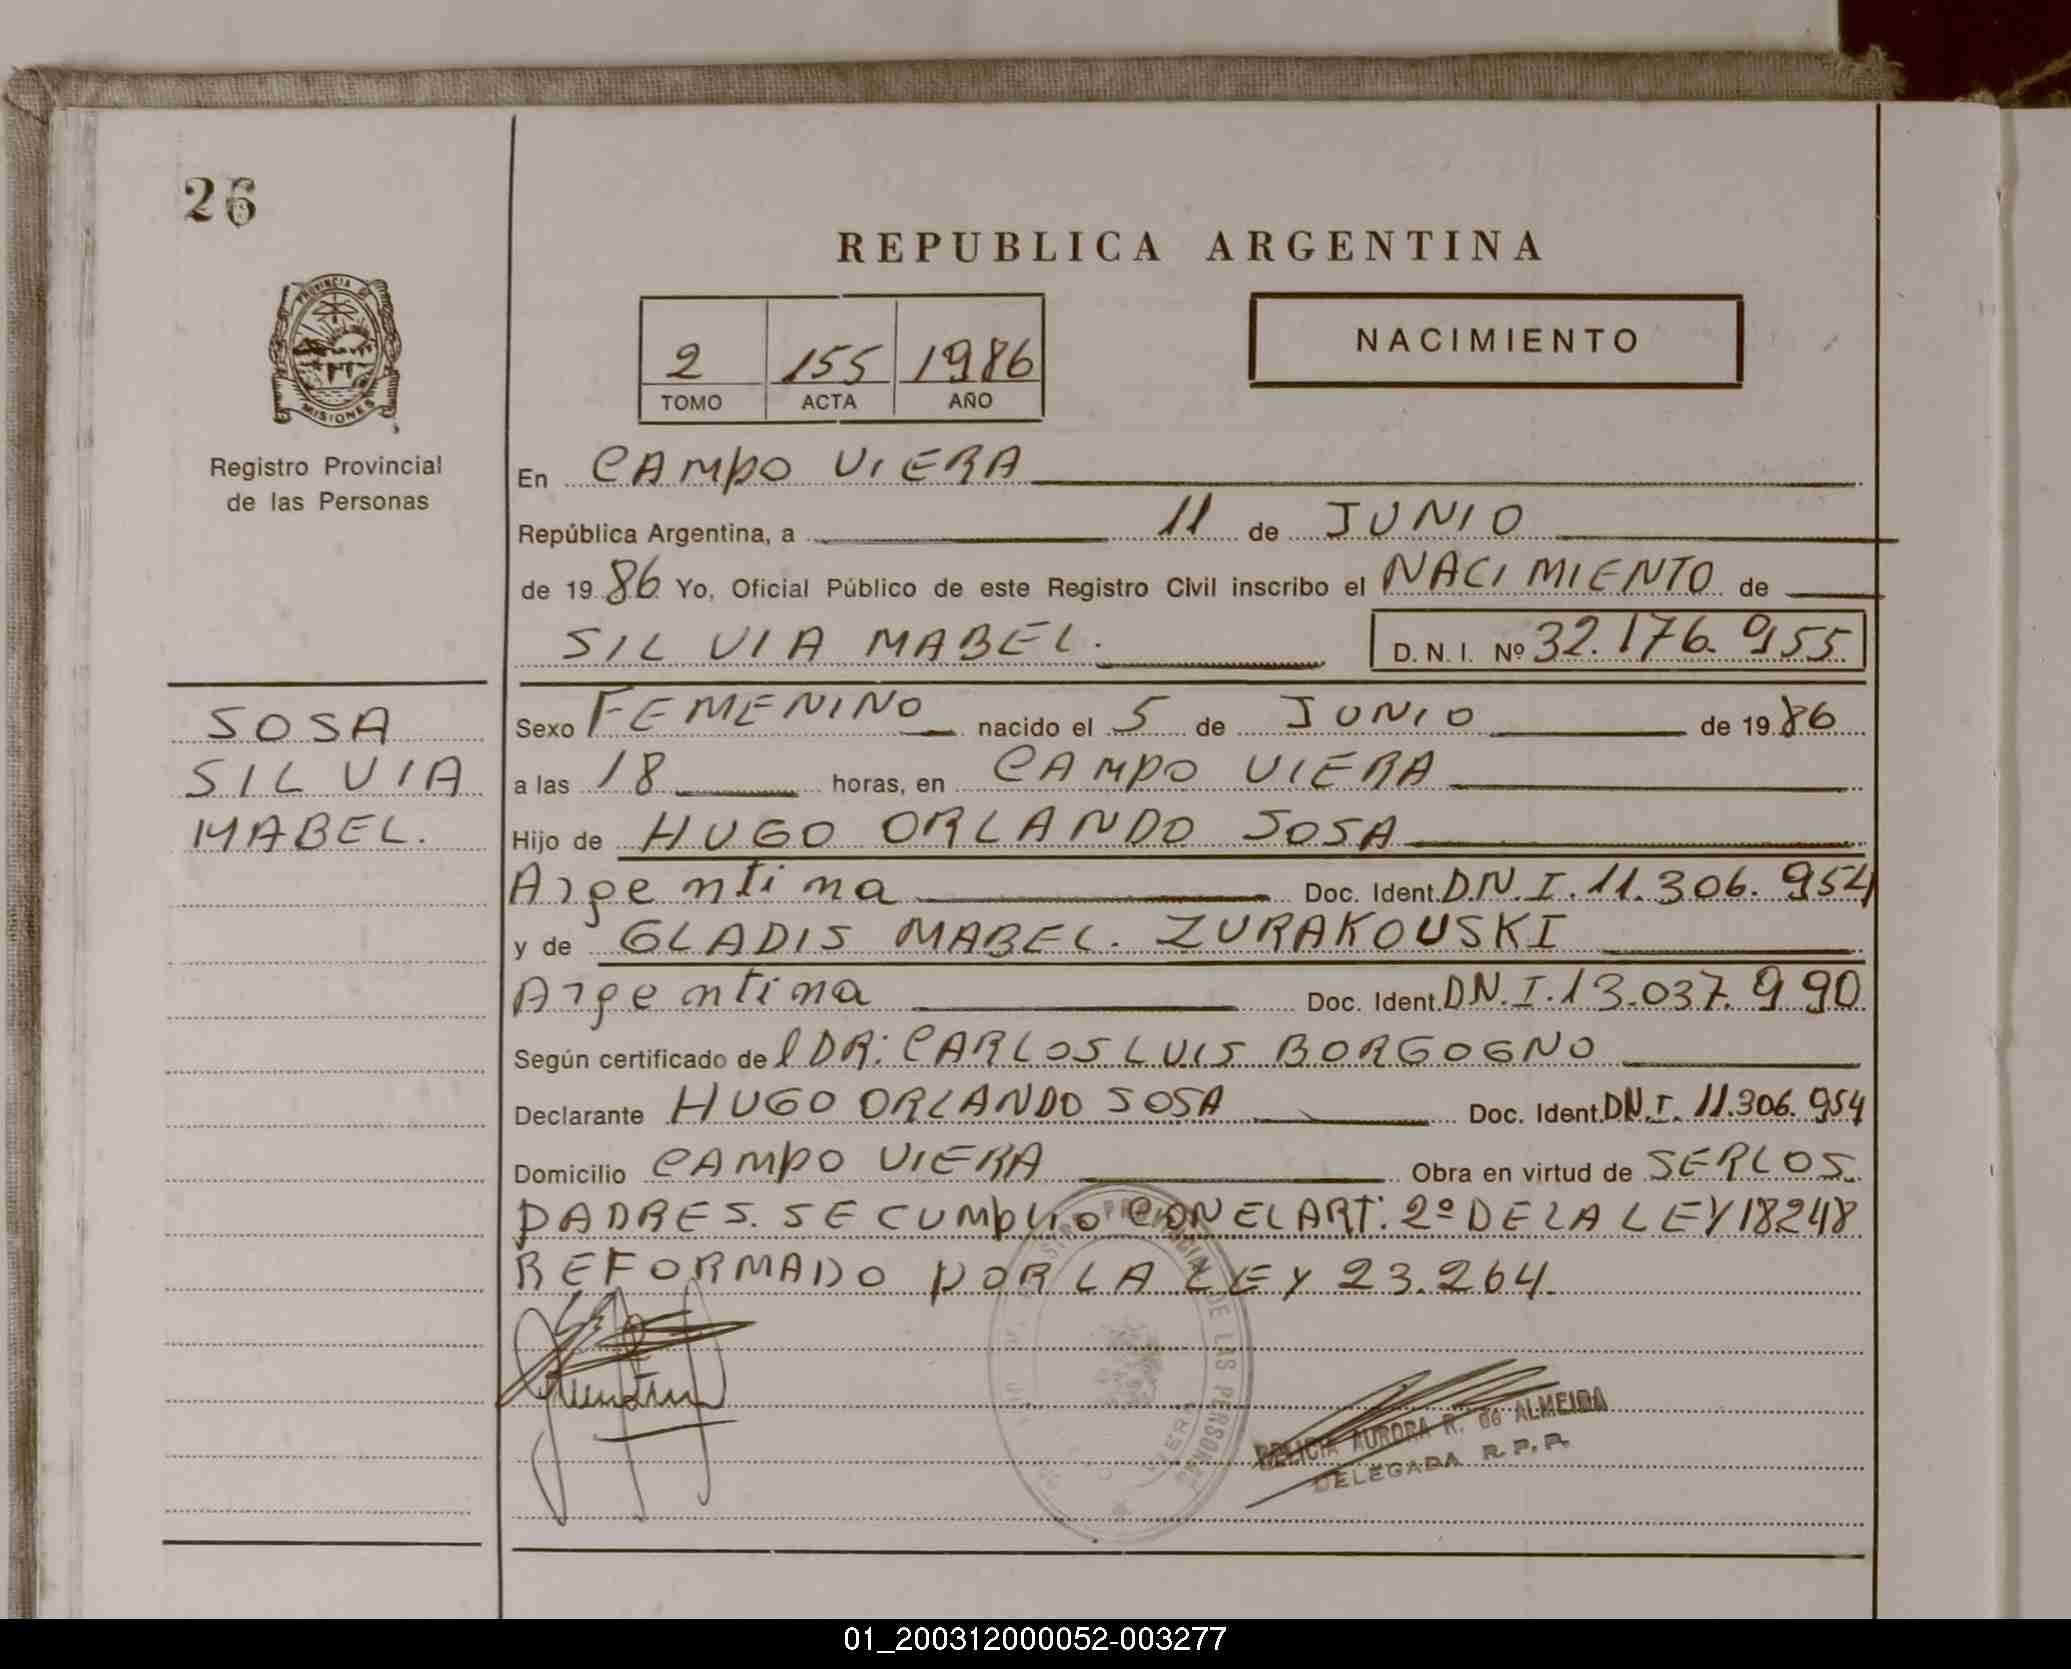 26
REPUBLICA ARGENTINA
PROVINCIA DE
MISIONES
Registro Provincial
de las Personas
2 155 1986
TOMO ACTA AÑO
NACIMIENTO
En CAMPO VIERA
República Argentina, a 11 de JUNIO
de 1986 Yo, Oficial Público de este Registro Civil inscribo el NACIMIENTO de
SILVIA MABEL. D.N.I. Nº 32.176.955
SOSA
SILVIA
MABEL.
Sexo FEMENINO nacido el 5 de JUNIO de 1986
a las 18 horas, en CAMPO VIERA
Hijo de HUGO ORLANDO SOSA
Argentina Doc. Ident. D.N.I. 11.306.954
y de GLADIS MABEL. ZURAKOUSKI
Argentina Doc. Ident. D.N.I. 13.037.990
Según certificado del DR: CARLOS LUIS BORGOGNO
Declarante HUGO ORLANDO SOSA Doc. Ident. D.N.I. 11.306.954
Domicilio CAMPO VIERA Obra en virtud de SER LOS
PADRES. SE CUMPLIO CON EL ART. 2º DE LA LEY 18248
REFORMADO POR LA LEY 23.264.
PROVINCIAL DE LAS PERSONAS
AURORA R. de ALMEIDA
DELEGADA R.P.P.
01_200312000052-003277